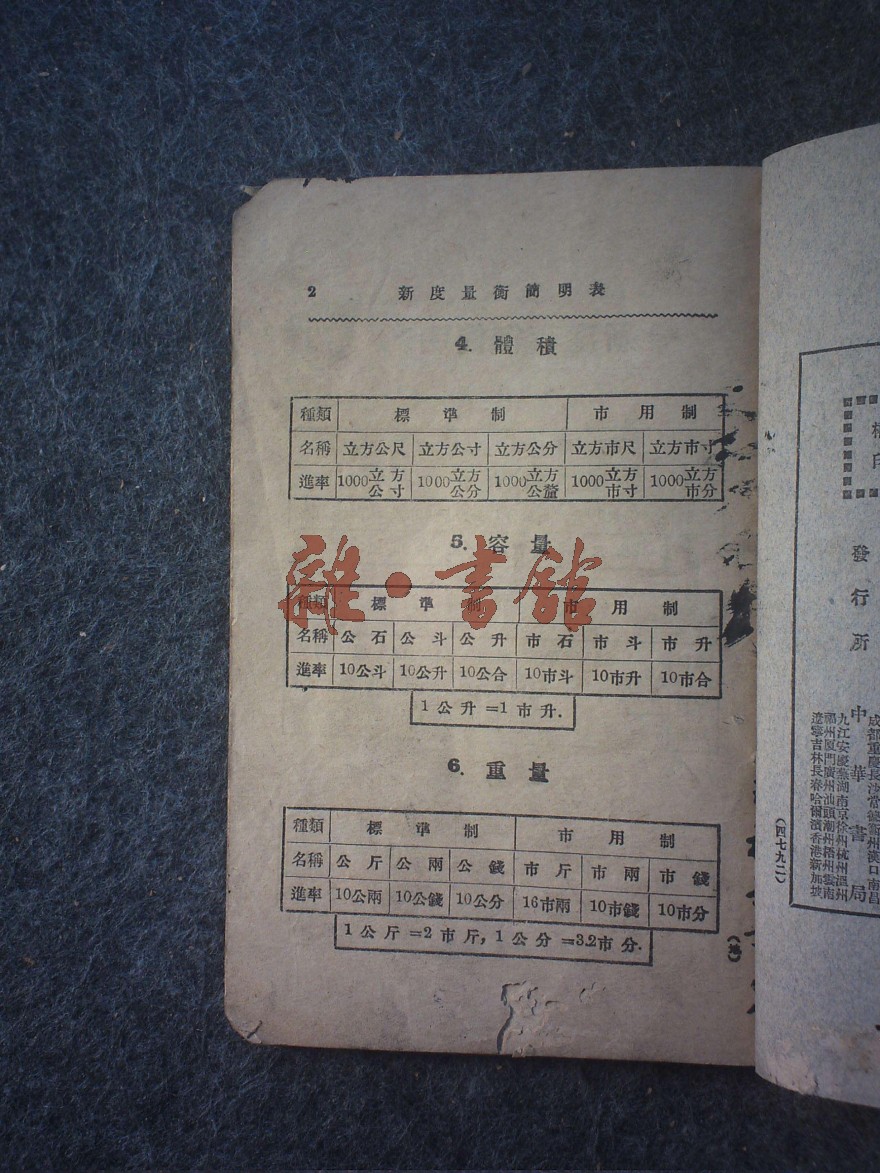 2 新度量衡簡明表
4. 體積
種類 標準制 市用制
名稱 立方公尺 立方公寸 立方公分 立方市尺 立方市寸
進率 1000立方公寸 1000立方公分 1000立方公釐 1000立方市寸 1000立方市分
5. 容量
種類 標準制 市用制
名稱 公石 公斗 公升 市石 市斗 市升
進率 10公斗 10公升 10公合 10市斗 10市升 10市合
1公升=1市升.
6. 重量
種類 標準制 市用制
名稱 公斤 公兩 公錢 市斤 市兩 市錢
進率 10公兩 10公錢 10公分 16市兩 10市錢 10市分
1公斤=2市斤, 1公分=3.2市分.
雜·書館
發行所
中華書局
九江安慶蕪湖南京徐州杭州溫州
福州廈門廣州汕頭潮州梧州雲南
遼寧吉林長春哈爾濱香港新加坡
(四七九二)